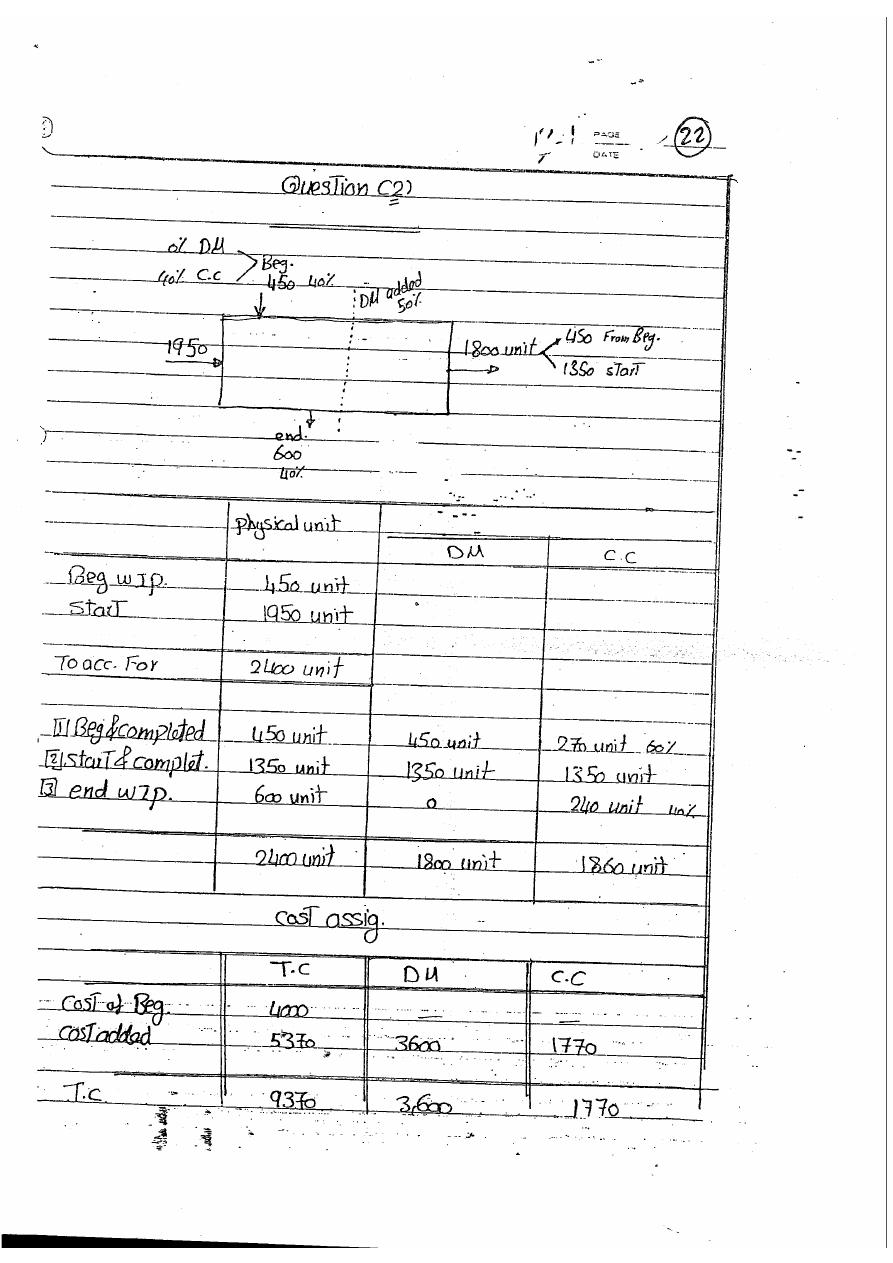 PAGE
DATE
22
Question (2)
0% DM
40% C.C
Beg.
450 40%
DM added
50%
1950
1800 unit
450 From Beg.
1350 start
end.
600
40%
physical unit
DM C.C
Beg WIP. 450 unit
Start 1950 unit
To acc. For 2400 unit
1 Beg & completed 450 unit 450 unit 270 unit 60%
2 start & complet. 1350 unit 1350 unit 1350 unit
3 end WIP. 600 unit 0 240 unit 40%
2400 unit 1800 unit 1860 unit
Cost assig.
T.C DM C.C
Cost of Beg. 4000 — —
Cost added 5370 3600 1770
T.C 9370 3,600 1770